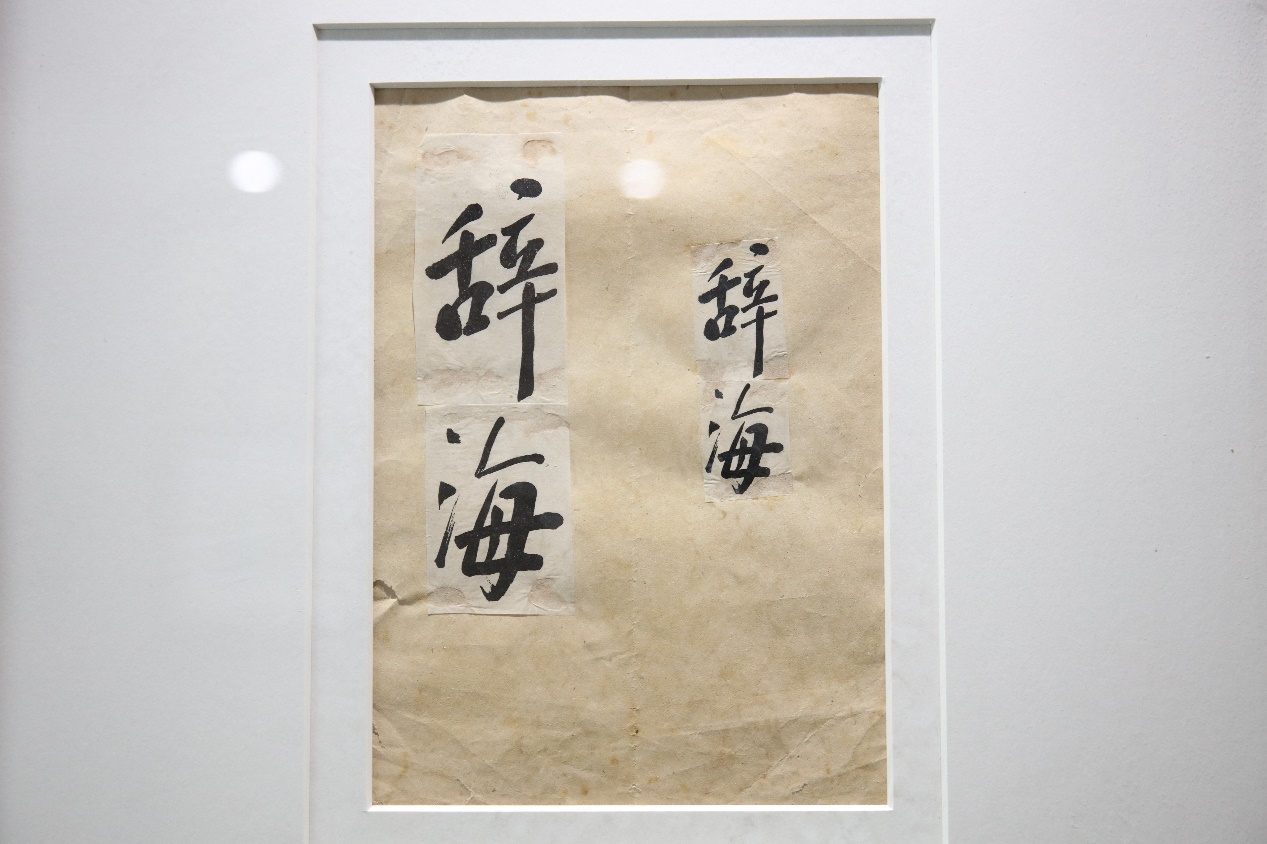 辞海
辞海